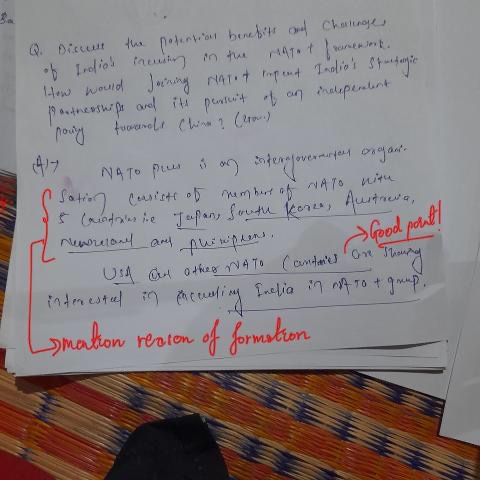 Q. Discuss the potential benefits and challenges
of India's incusing in the NATO+ framework.
How would joining NATO+ impact India's Strategic
Partnerships and its pursuit of an independent
policy towards China? (
(A) →
NATO plus is an intergovernmental organi-
sation consists of members of NATO with
5 Countries i.e Japan, South Korea, Australia,
and philipiens.
Good point!
USA and other NATO Countries are showing
interested in including India in NATO + group.
mention reason of formation